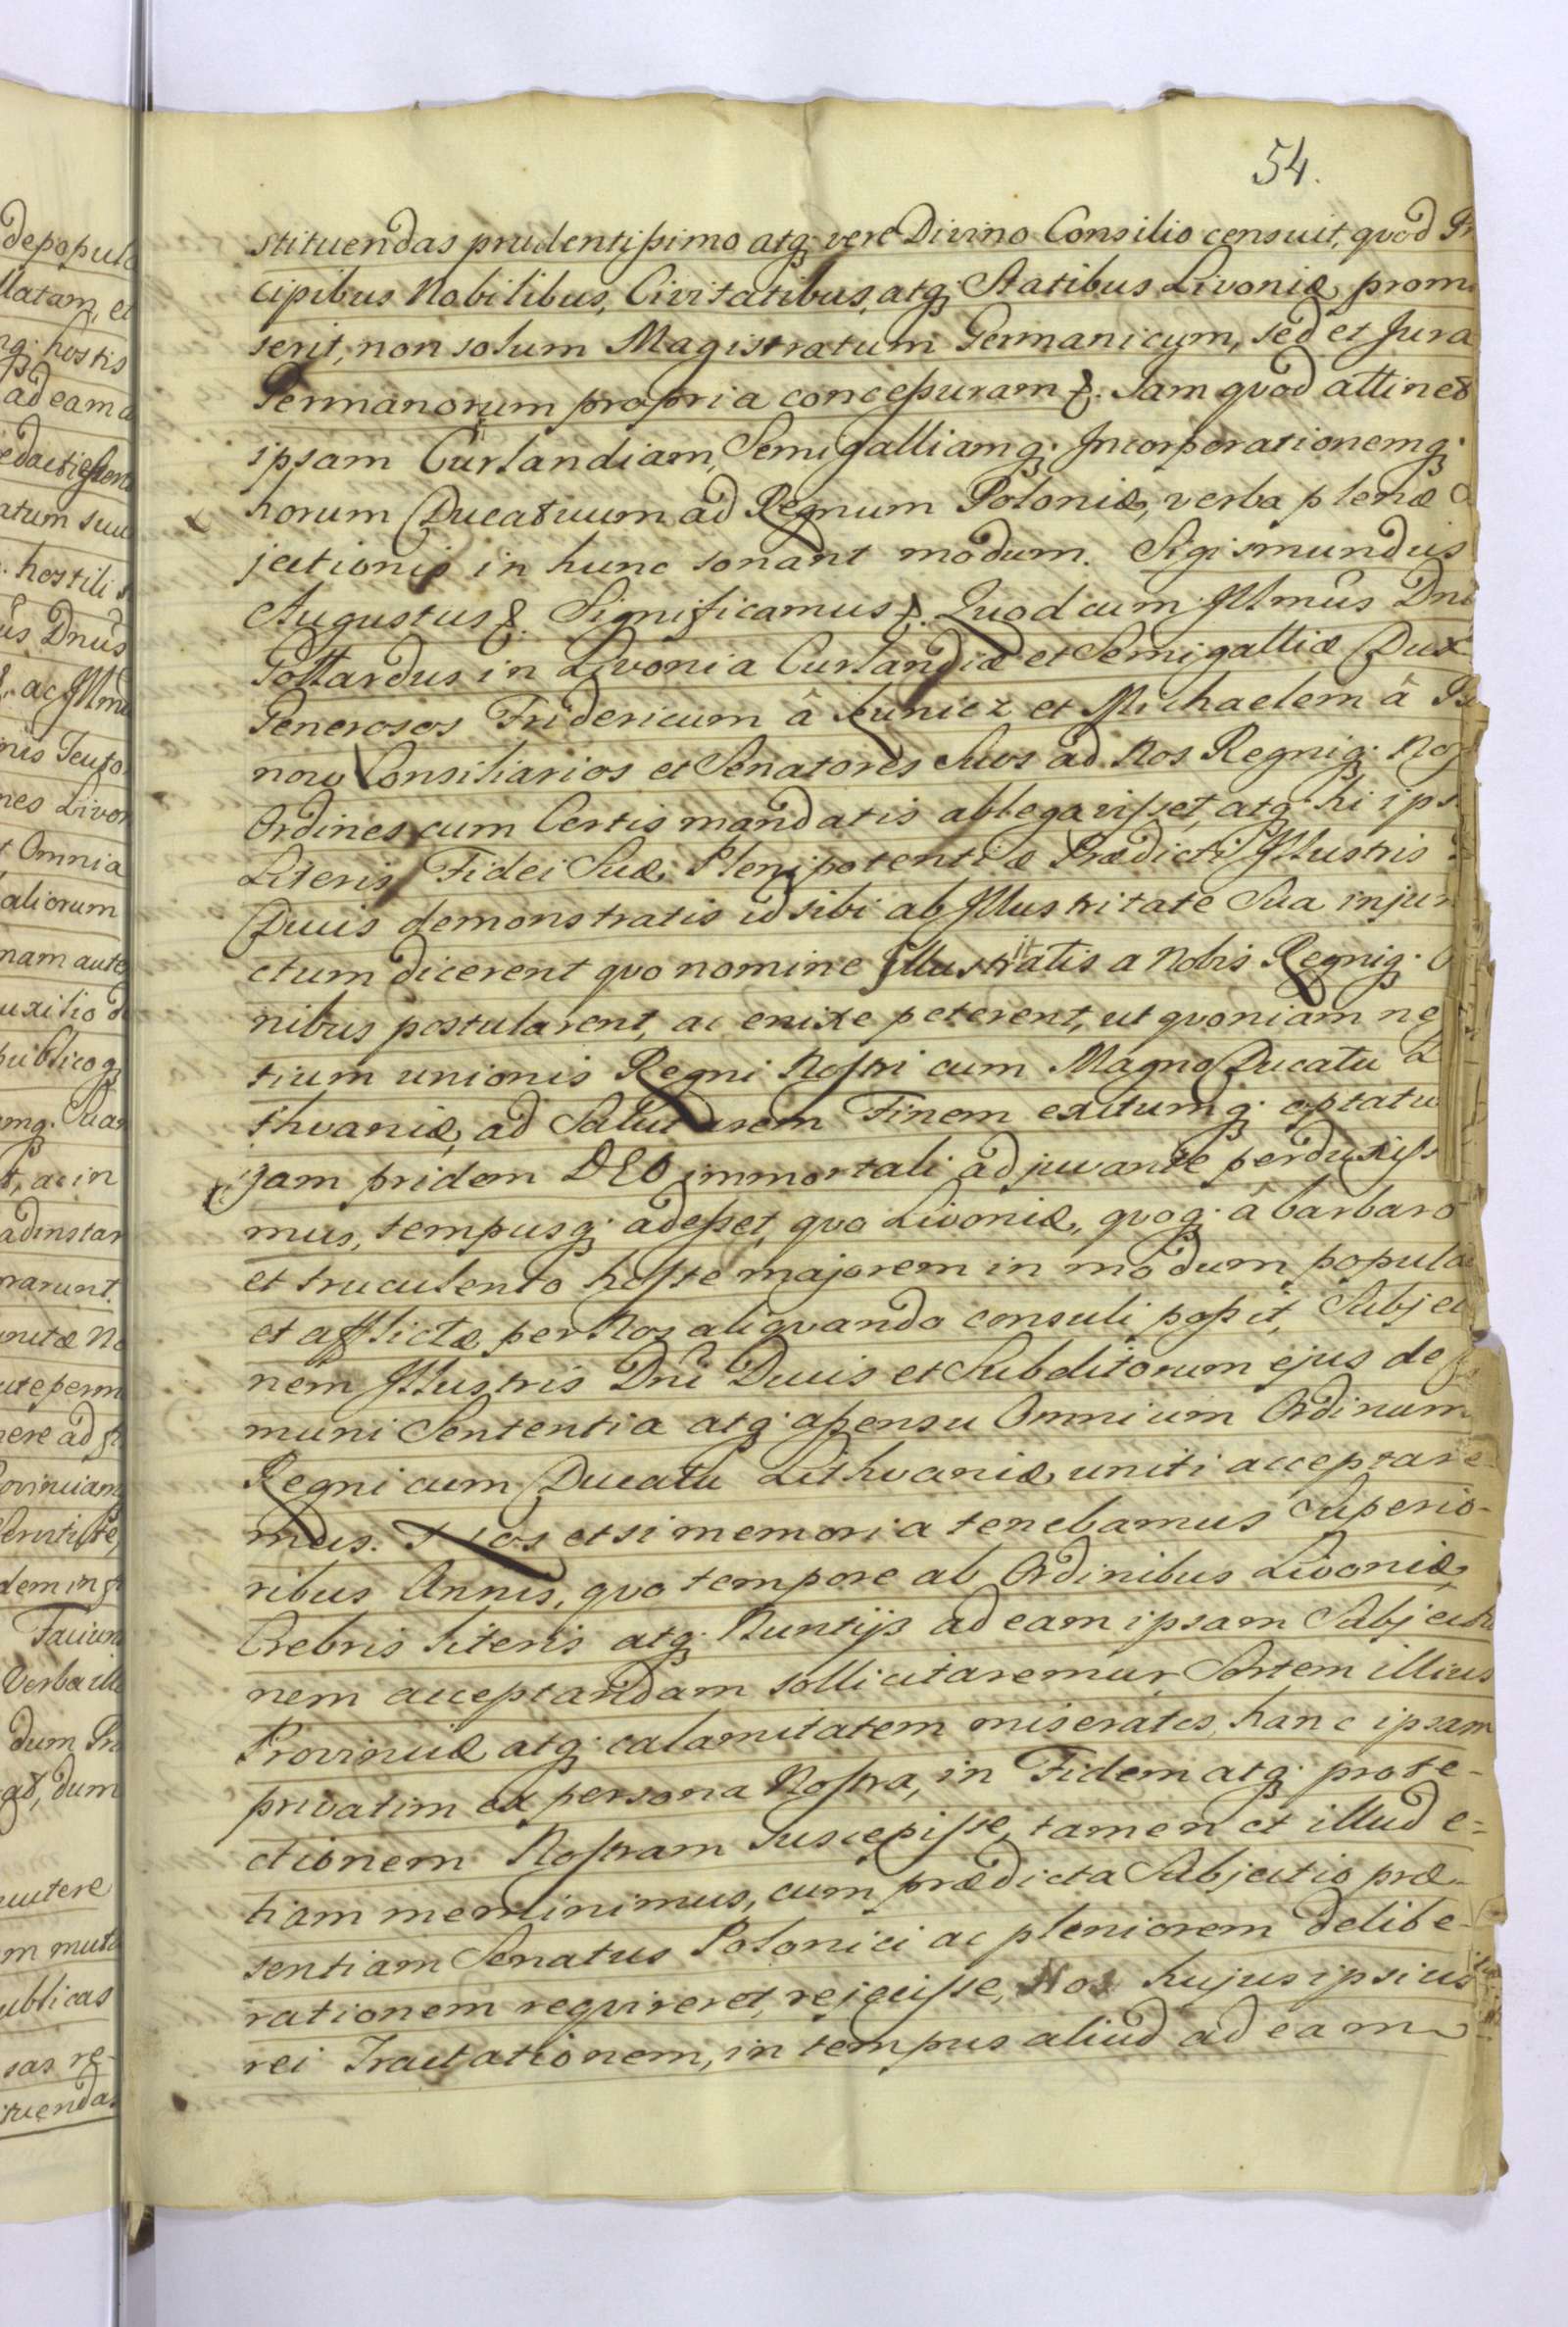 54.
stituendas prudentißimo atq; vere Divino Consilio censuit, qvod Pr
cipibus Nobilibus, Civitatibus, atq; Statibus Livoniæ, prom
serit, non solum Magistratum Germanicum, sed et Jura
Germanorum propria conceßuram &. Jam qvod attinet
ipsam Curlandiam, Semigalliamq; Incorporationemq;
horum Ducatuum ad Regnum Poloniæ, verba plenæ
jectionis in hunc sonant modum. Sigismundus
Augustus &. Significamus &. Quod cum Illmûs Dn
Gottardus in Livonia Curlandiæ et Semigalliæ Dux
Generosos Fridericum â et Michaelem â
now Consiliarios et Senatores Suos ad Nos Regniq; No
Ordines cum Certis mandatis ablegavißet, atq; hi ips
Literis Fidei Suæ, Plenipotentiæ Prædicti Illustris
Ducis demonstratis id sibi ab Illustritate Sua injun
ctum dicerent qvo nomine Illustritatis a Nobis Regniq; O
nibus postularent, ac enixe peterent, ut qvoniam ne
tium unionis Regni Nostri cum Magno Ducatu L
thvaniæ, ad Salutarem Finem exitumq; optatu
jam pridem DEO immortali adjuvante perduxiß
mus, tempusq; adeßet, qvo Livoniæ, qvoq; â barbaro
et truculento hoste majorem in modum popula
et afflictæ, per Nos aliqvando consuli poßit, Subjec
nem Illustris Dni Ducis et Subditorum ejus de
muni Sententia atq; aßensu Omnium Ordinum
Regni cum Ducatu Lithvaniæ, uniti acceptare
mus. Nos etsi memoria tenebamus Superio-
ribus Annis, qvo tempore ab Ordinibus Livoniæ,
Crebris Literis atq; Nuntijs ad eam ipsam Subjectio
nem acceptandam sollicitaremur, Sortem illius
Provinciæ atq; calamitatem miserates, hanc ipsam
privatim ex persona Nostra, in Fidem atq; prote-
ctionem Nostram suscepiße, tamen et illud e=
tiam meminimus, cum prædicta Subjectio præ-
sentiam Senatus Polonici ac pleniorem delibe-
rationem reqvireret, rejeciße, Nos hujus ipsius
rei Tractationem, in tempus aliud ad eam
depopula
llatam, et
hostis
ad eam
hostili
Dnûs
Omnia
aliorum
publicoq;
ac in
ad instar
Verba ille
dum
publicas